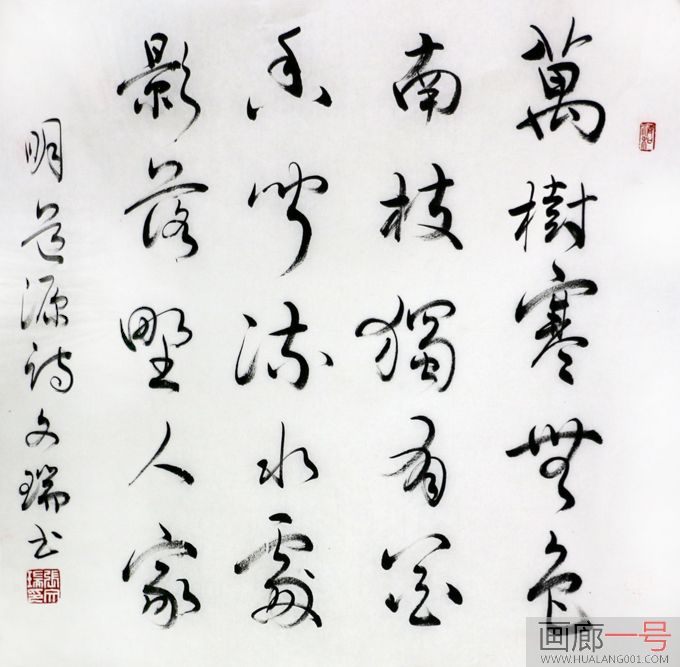 萬樹寒無色
南枝獨有花
香聞流水處
影落野人家
明道源詩文瑞书
張文瑞印
画廊一号
WWW.HUALANG001.COM